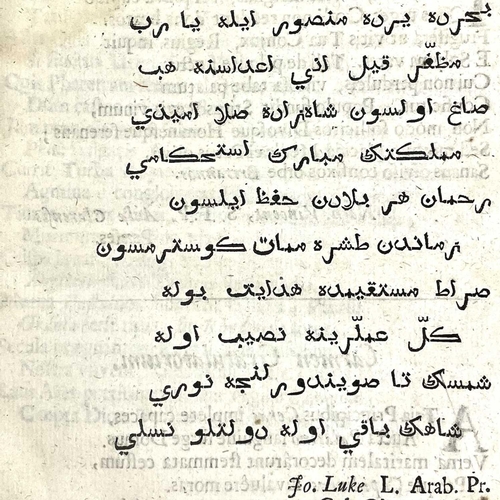 بحرده برده منصور ايله يا رب
مظفّر قيل اني اعداسنه هب
صاغ اولسون شاهزاده صلا اميدي
مملكتك مبارك استحكامي
رحمان هر بلادن حفظ ايلسون
زماندن طشره ممات كوسترمسون
صراط مستقيمده هدايت بوله
كلّ عملرينه نصيب اوله
شمسك تا صويندورلنجه نوري
شاهك باقي اوله دولتلو نسلي
Jo. Luke L. Arab. Pr.